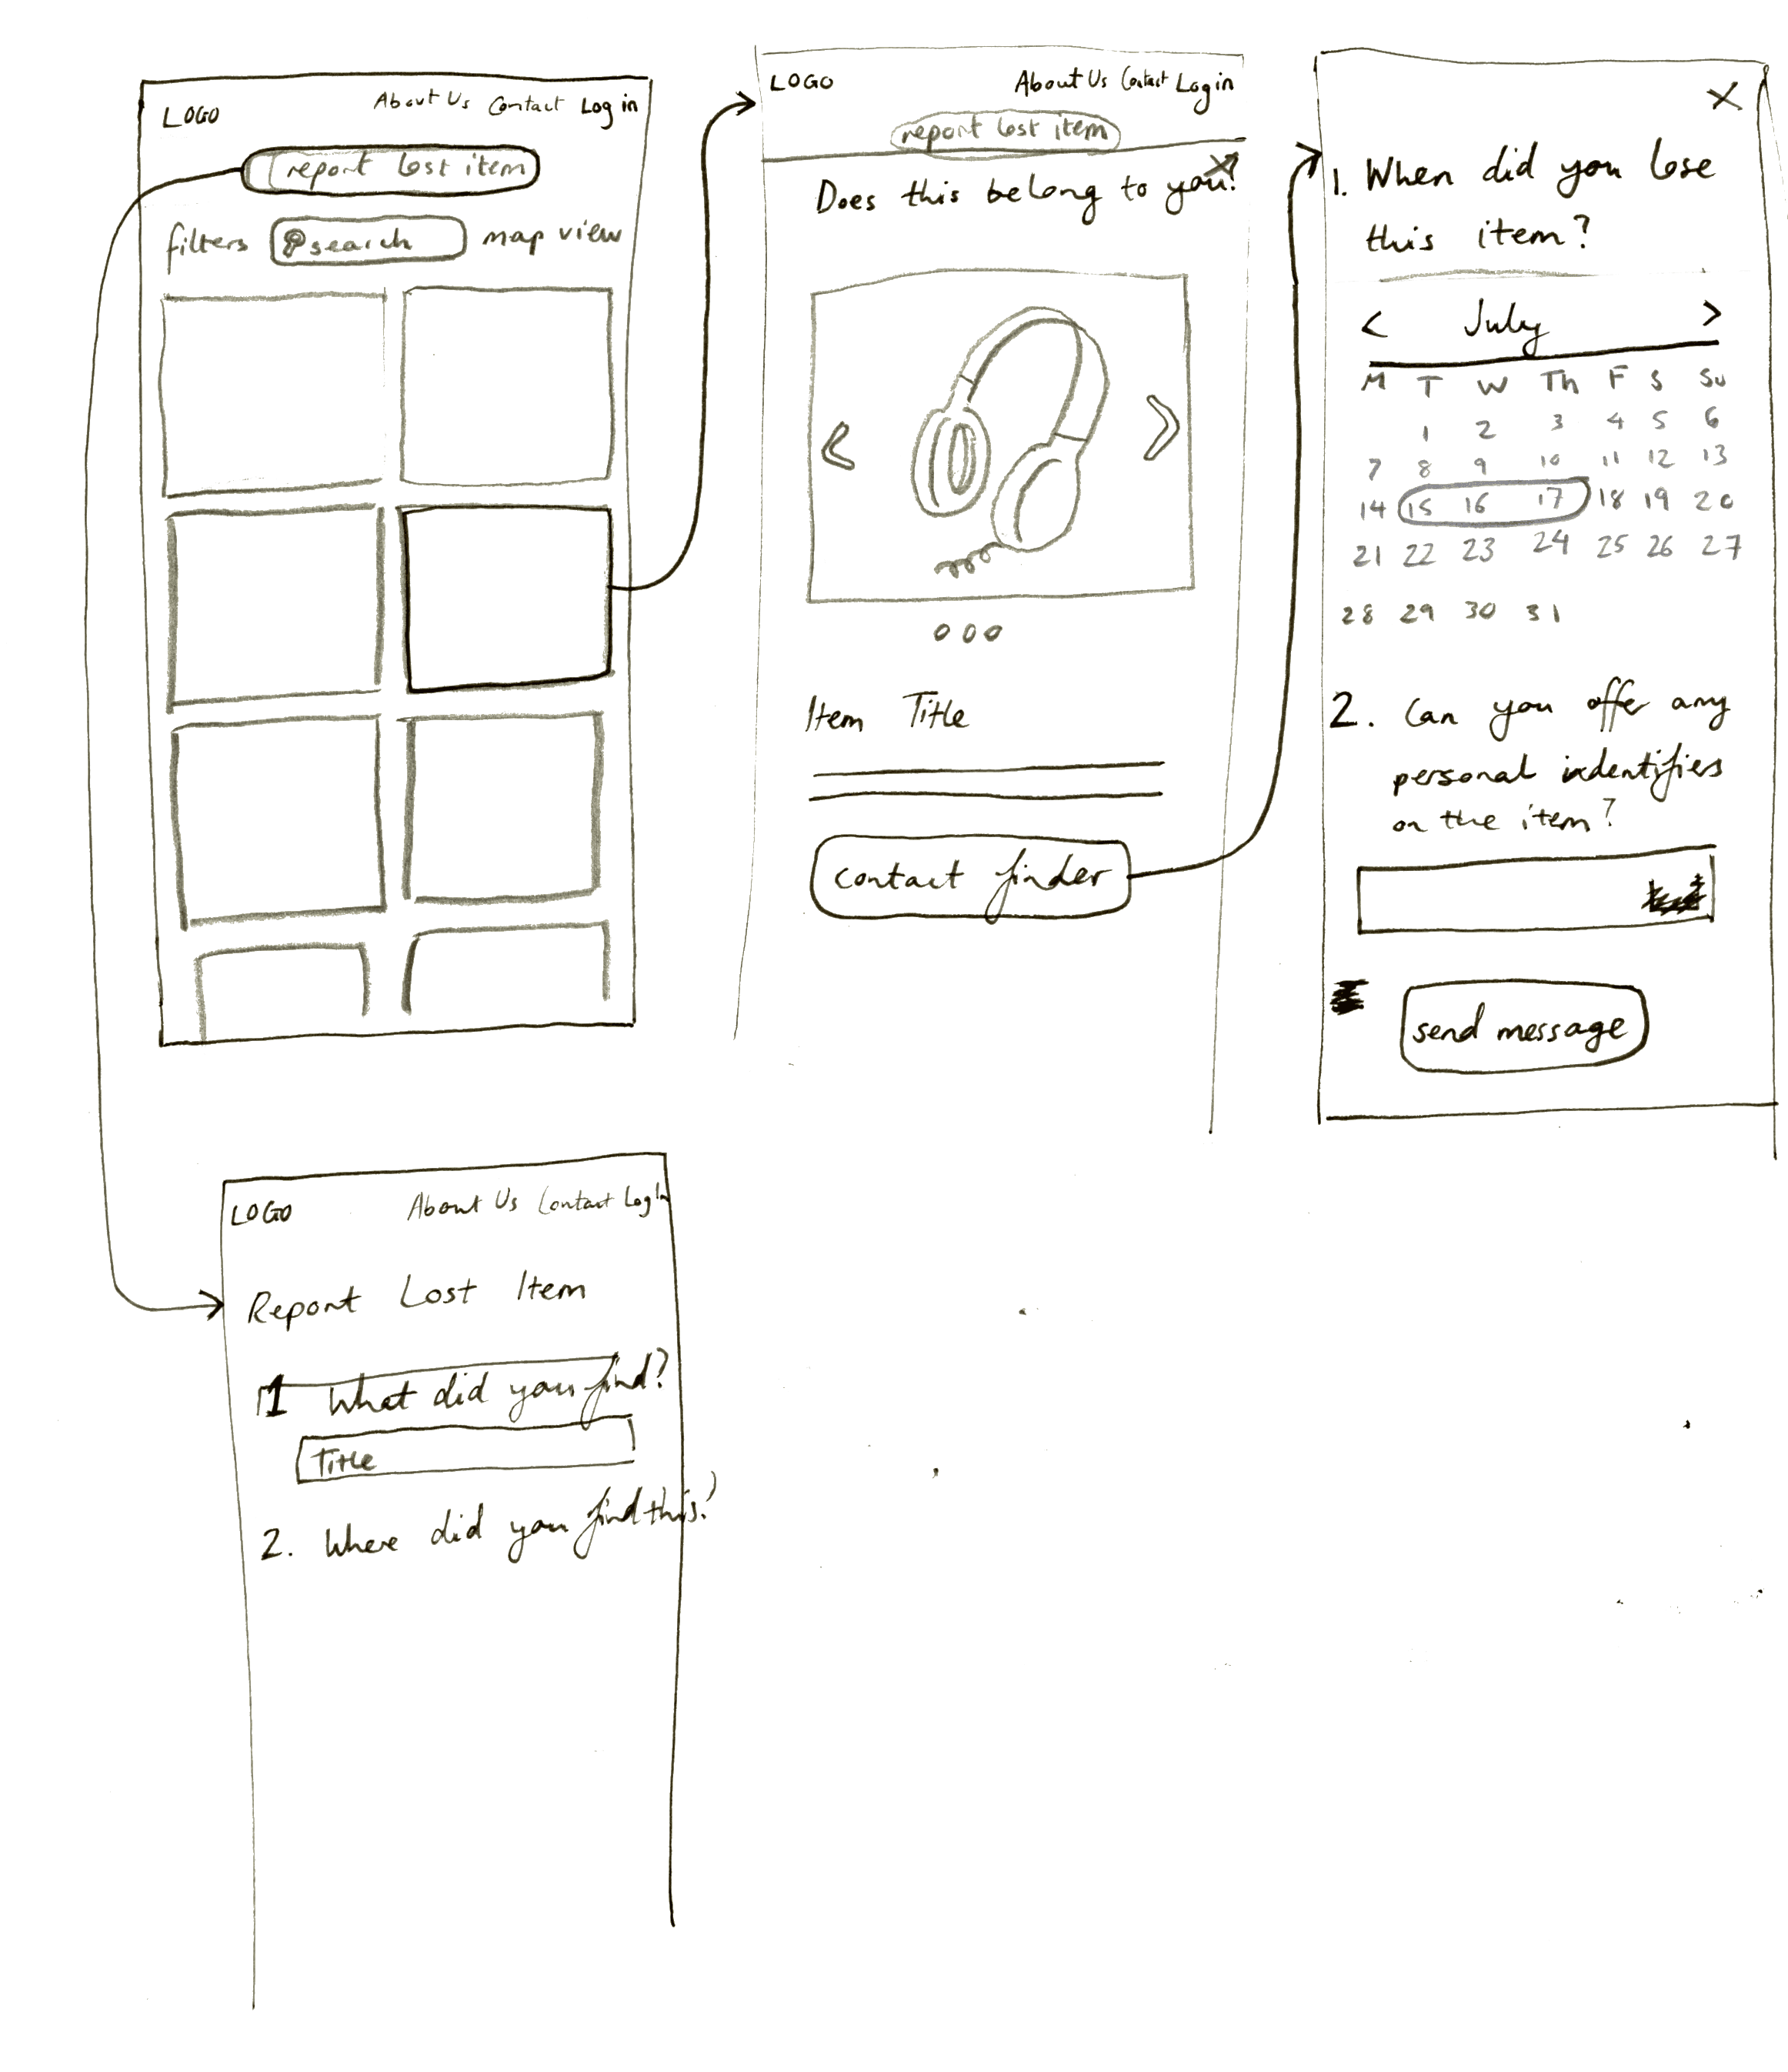 LOGO About Us Contact Log in
report lost item
filters search map view
LOGO About Us Contact Log in
report lost item
Does this belong to you?
Item Title
contact finder
1. When did you lose
this item?
< July >
M T W Th F S Su
1 2 3 4 5 6
7 8 9 10 11 12 13
14 15 16 17 18 19 20
21 22 23 24 25 26 27
28 29 30 31
2. Can you offer any
personal indentifies
on the item?
send message
LOGO About Us Contact Log In
Report Lost Item
1 What did you find?
Title
2. Where did you find this?